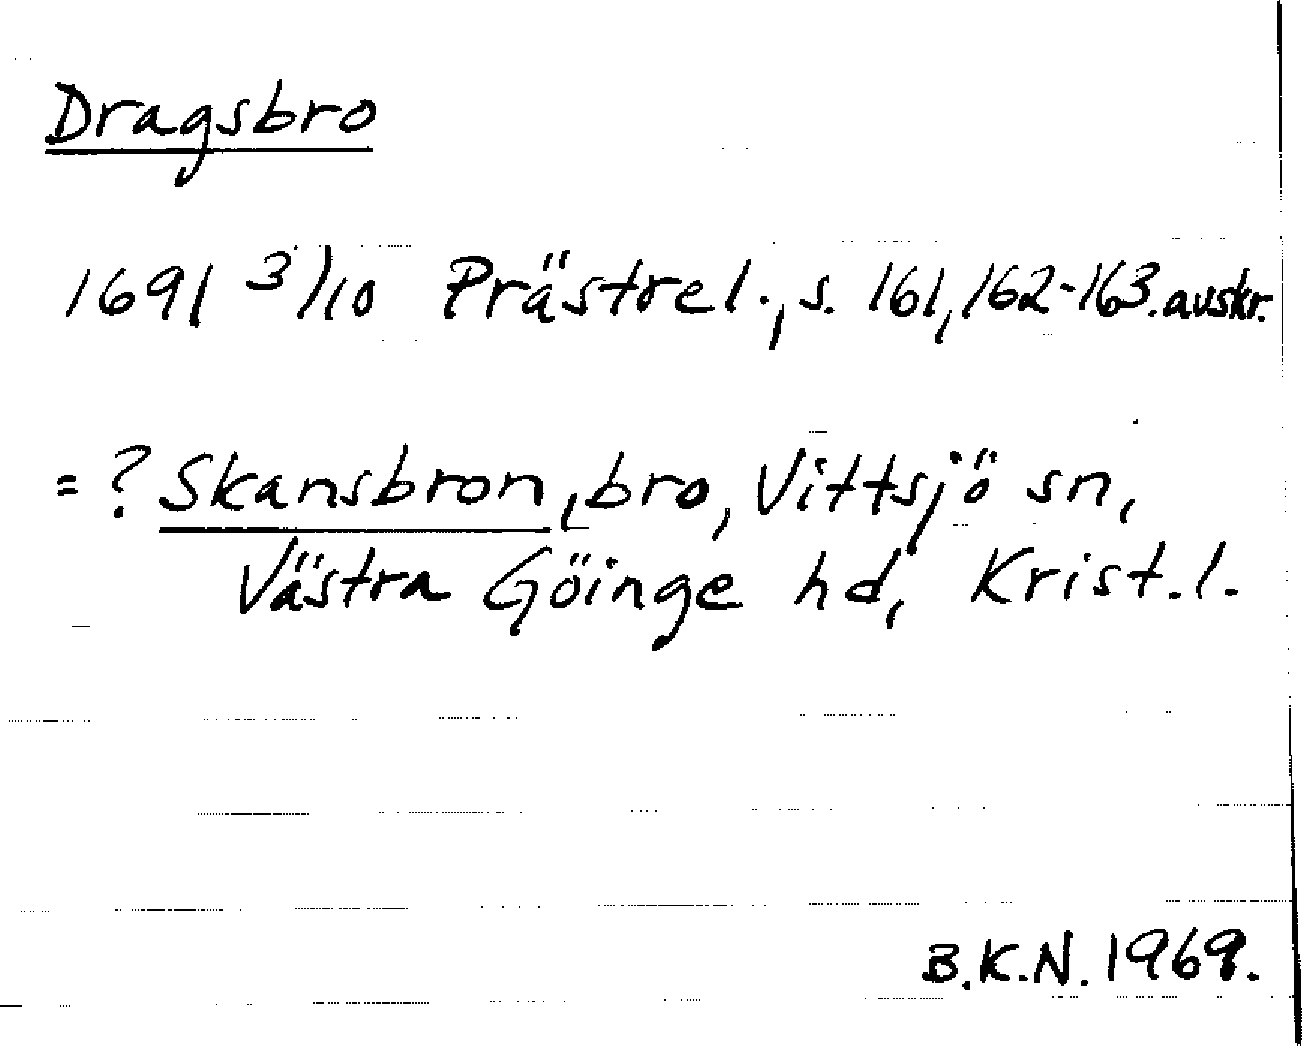 Dragsbro
1691 3/10 Prästrel., s. 161, 162-163. avskr.
= ? Skansbron, bro, Vittsjö sn,
Västra Göinge hd, Krist. l.
B.K.N. 1969.